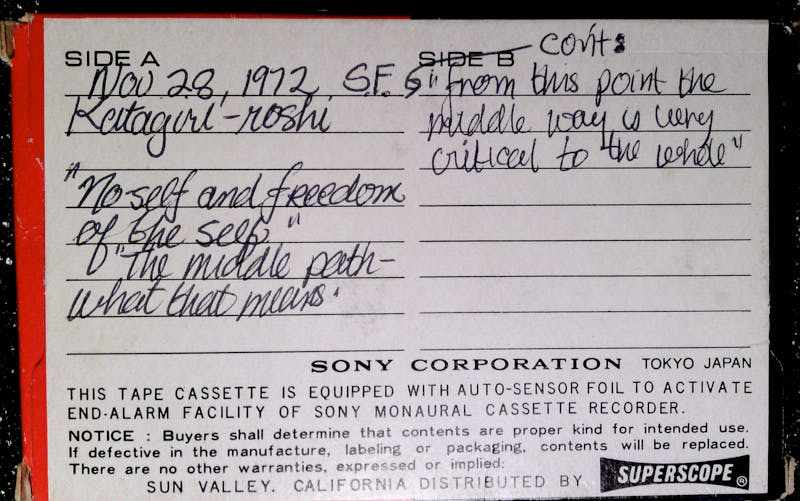 SIDE A
Nov 28, 1972 S.F.
Katagiri-roshi
"No self and freedom
of the self"
"The middle path-
what that means.
SIDE B con't:
"from this point the
middle way is very
critical to "the whole"
SONY CORPORATION TOKYO JAPAN
THIS TAPE CASSETTE IS EQUIPPED WITH AUTO-SENSOR FOIL TO ACTIVATE
END-ALARM FACILITY OF SONY MONAURAL CASSETTE RECORDER.
NOTICE : Buyers shall determine that contents are proper kind for intended use.
If defective in the manufacture, labeling or packaging, contents will be replaced.
There are no other warranties, expressed or implied:
SUN VALLEY, CALIFORNIA DISTRIBUTED BY SUPERSCOPE®